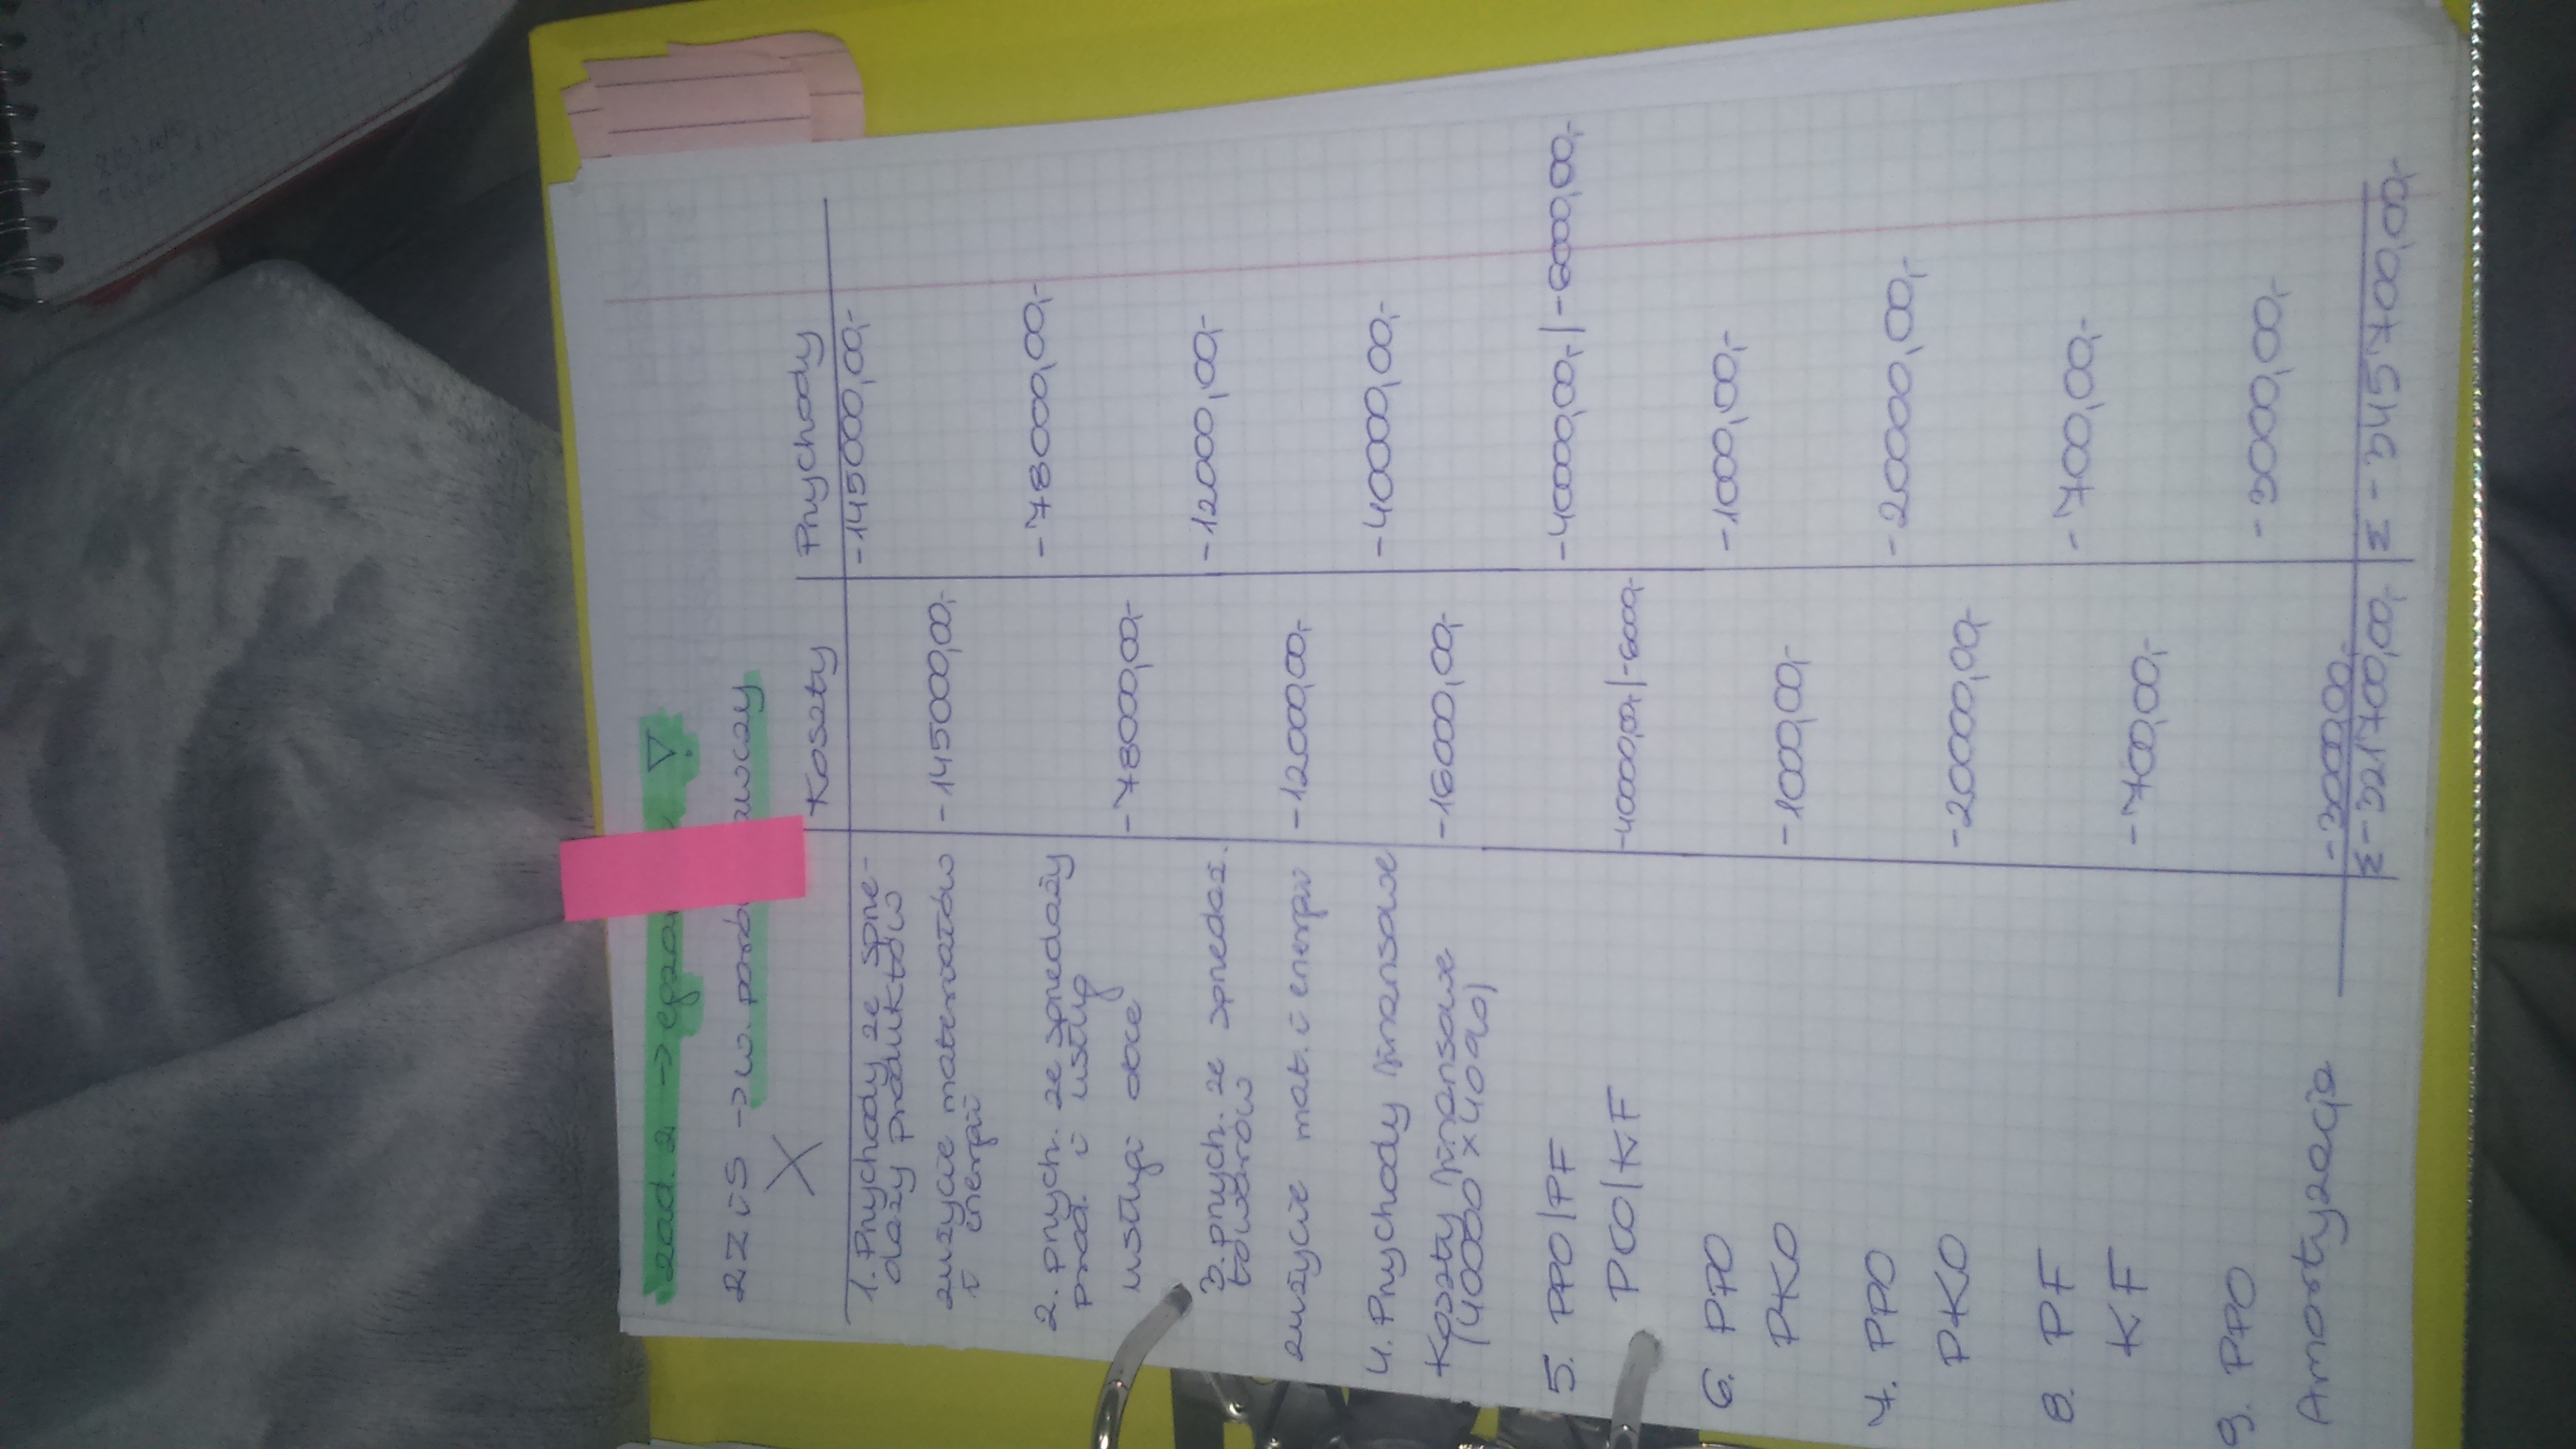 zad. 2 → egzamin ▽!
RZiS → w. porównawczy
X Koszty Przychody
1. Przychody ze sprze- -145000,00,-
daży produktów
zużycie materiałów -145000,00,-
i energii
2. przych. ze sprzedaży -78000,00,-
prod. i usług
usługi obce -78000,00,-
3. przych. ze sprzedaż. -12000,00,-
towarów
zużycie mat. i energii -12000,00,-
4. Przychody finansowe -40000,00,-
Koszty finansowe -16000,00,-
(40000 x 40%)
5. PPO/PF -40000,00,- | -6000,00,-
PCO/KF -40000,00,- | -6000,-
6. PPO -1000,00,-
PKO -1000,00,-
7. PPO -20000,00,-
PKO -20000,00,-
8. PF -700,00,-
KF -700,00,-
9. PPO -3000,00,-
Amortyzacja -3000,00,-
Σ - 321700,00,- | Σ - 345700,00,-